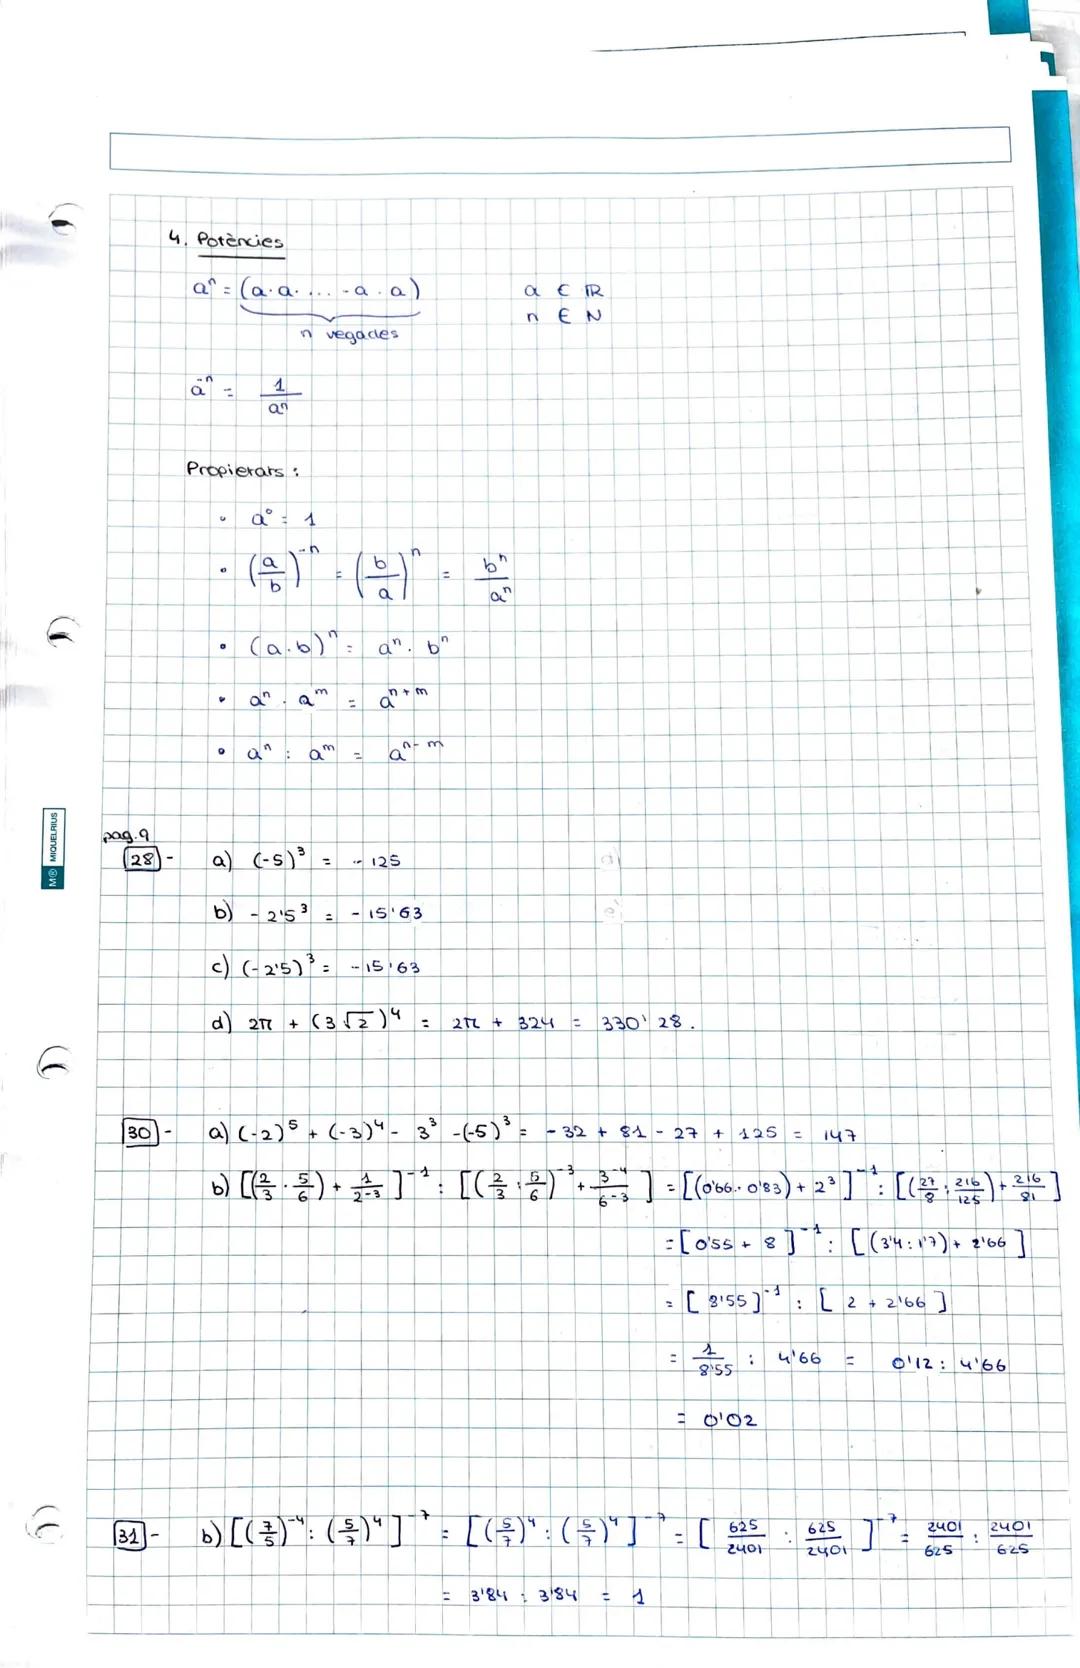 4. Potències
aⁿ = (a·a· ... ·a·a)    a ∈ ℝ
n vegades    n ∈ N
a⁻ⁿ = 1/aⁿ
Propietats:
• a⁰ = 1
• (a/b)⁻ⁿ = (b/a)ⁿ = bⁿ/aⁿ
• (a·b)ⁿ = aⁿ · bⁿ
• aⁿ · aᵐ = aⁿ⁺ᵐ
• aⁿ : aᵐ = aⁿ⁻ᵐ
M® MIQUELRIUS
pag. 9
28 - a) (-5)³ = -125
b) - 2'5³ = - 15'63
c) (-2'5)³ = -15'63
d) 2π + (3√2)⁴ = 2π + 324 = 330'28.
30 - a) (-2)⁵ + (-3)⁴ - 3³ -(-5)³ = -32 + 81 - 27 + 125 = 147
b) [(2/3 · 5/6) + 1/2⁻³]⁻¹ : [(2/3 : 5/6)⁻³ + 3⁻⁴/6⁻³] = [(0'66 · 0'83) + 2³]⁻¹ : [(27/8 : 216/125) + 216/81]
= [0'55 + 8]⁻¹ : [(3'4 : 1'7) + 2'66]
= [8'55]⁻¹ : [2 + 2'66]
= 1/8'55 : 4'66 = 0'12 : 4'66
= 0'02
31 - b) [(7/5)⁻⁴ : (5/7)⁴]⁻⁷ = [(5/7)⁴ : (5/7)⁴]⁻⁷ = [625/2401 : 625/2401]⁻⁷ = 2401/625 : 2401/625
= 3'84 : 3'84 = 1